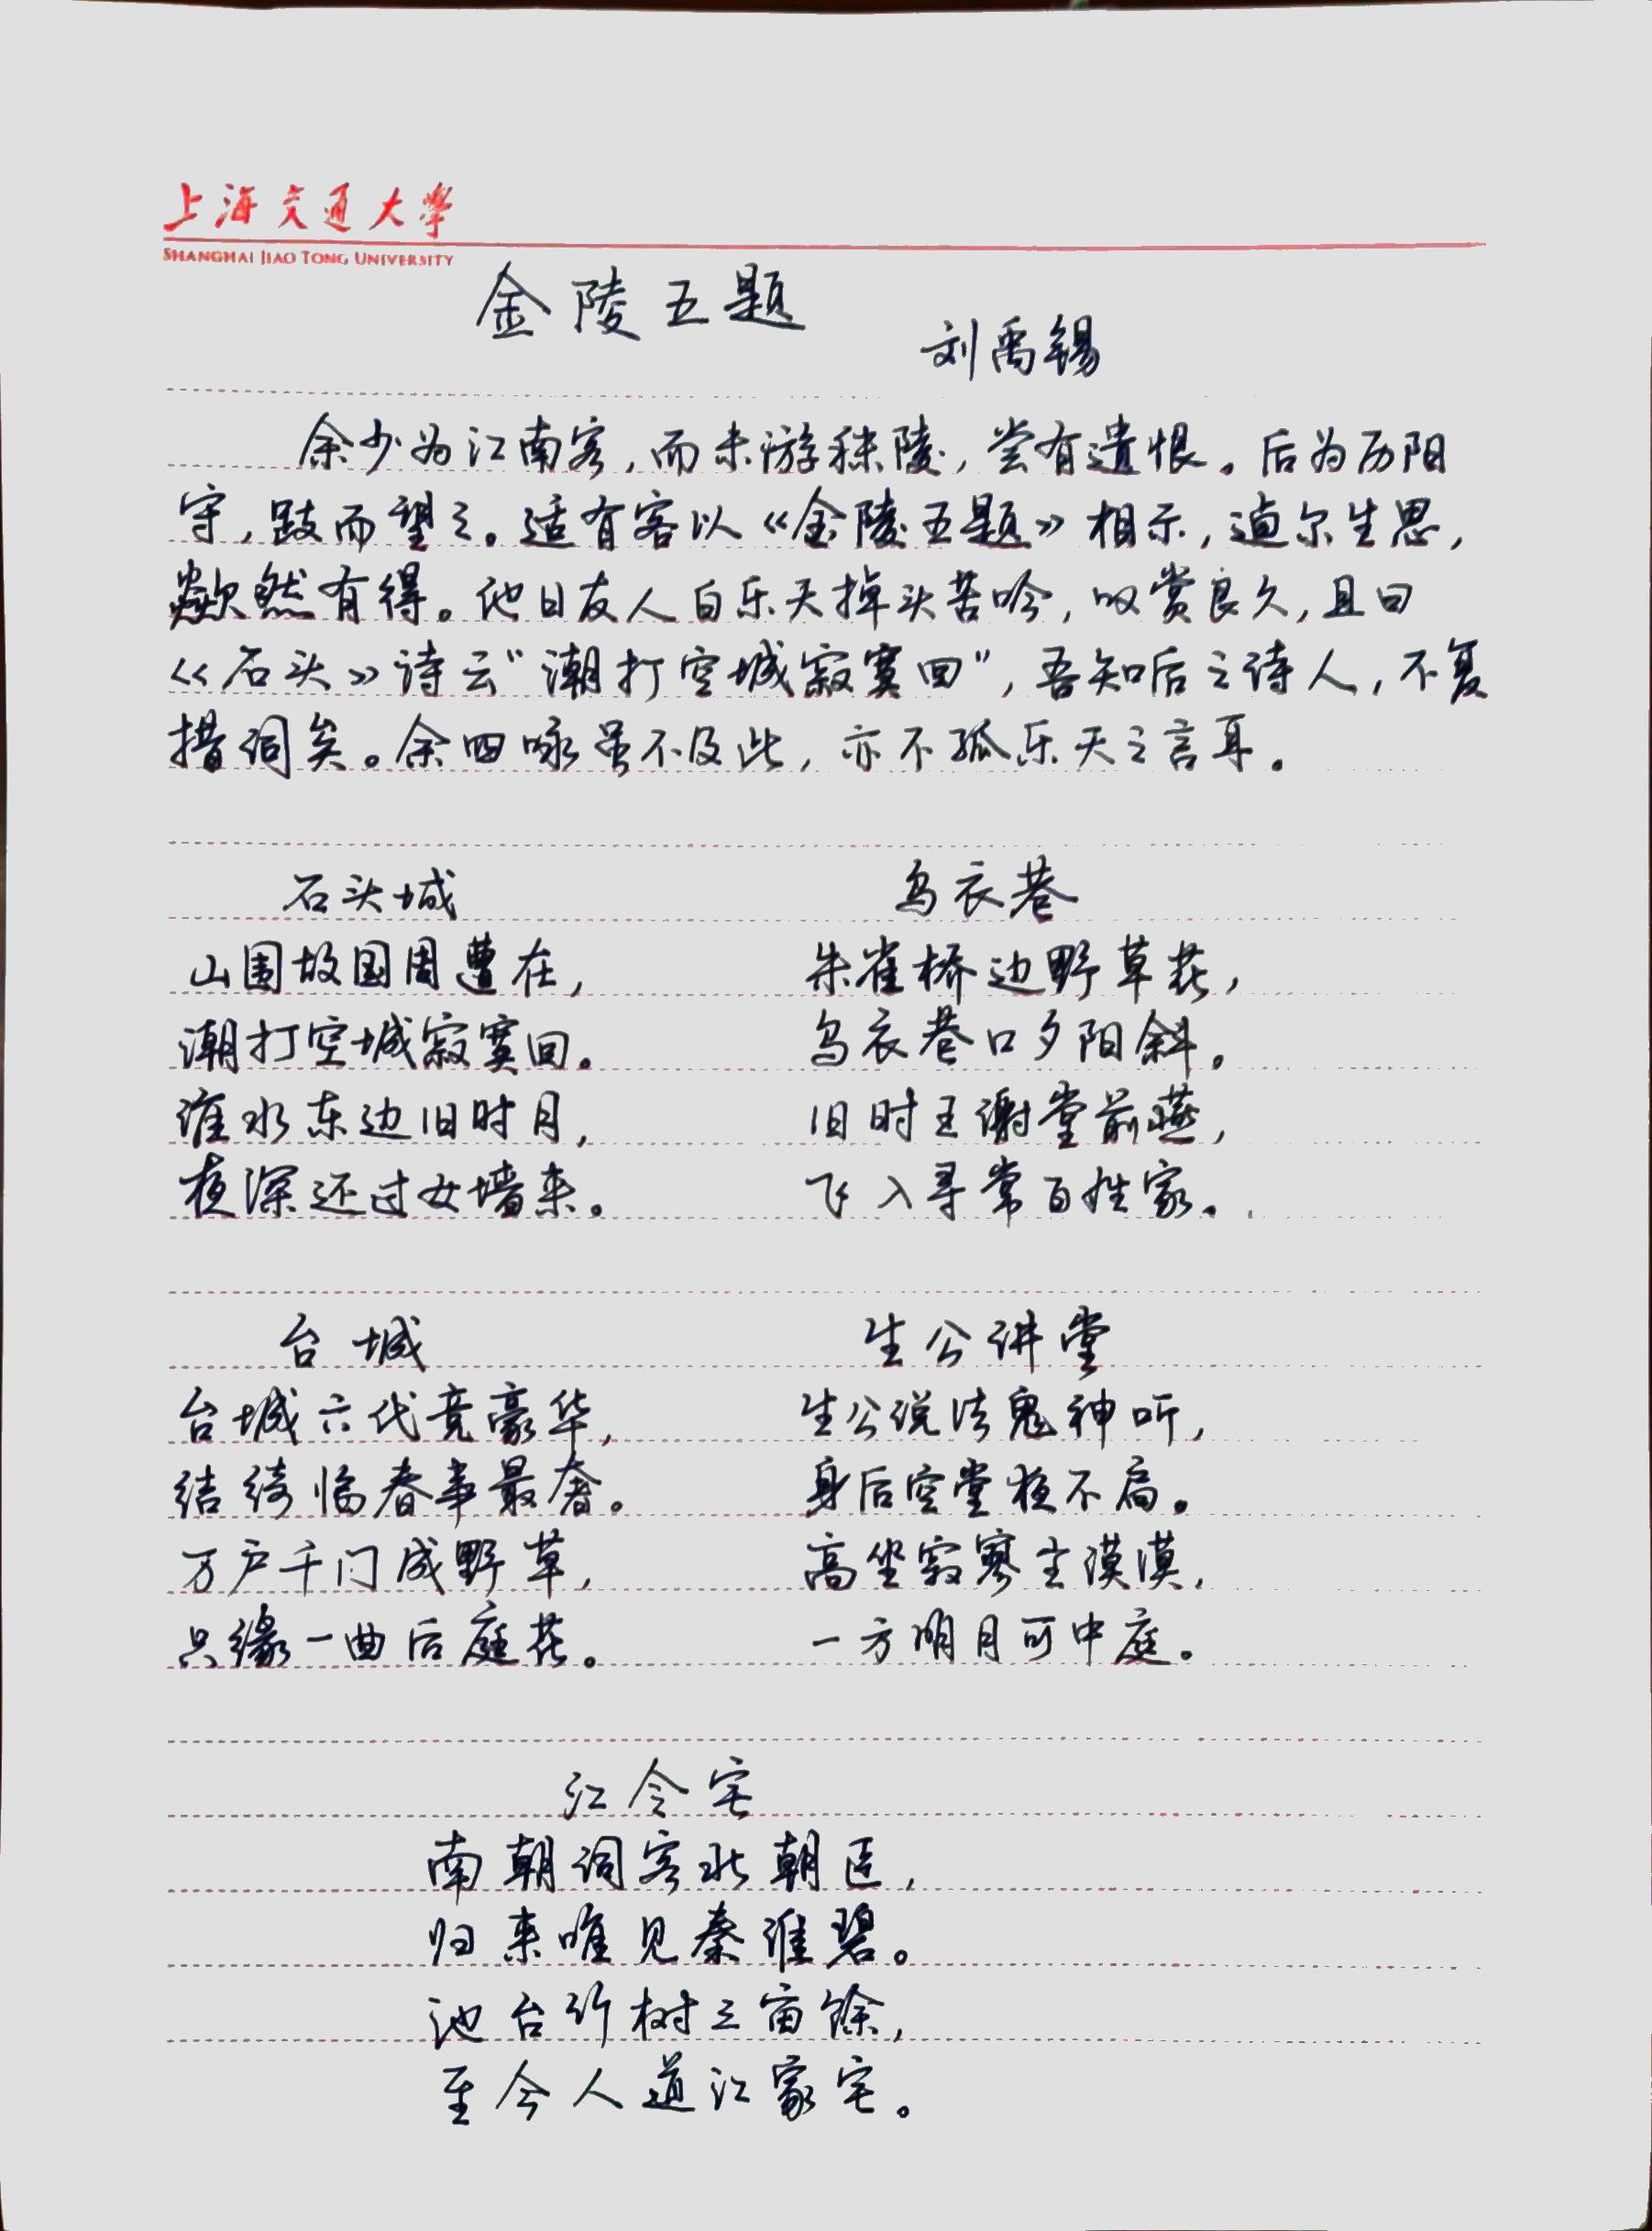 上海交通大學
SHANGHAI JIAO TONG UNIVERSITY
金陵五题
刘禹锡
余少为江南客,而未游秣陵,尝有遗恨。后为历阳
守,跂而望之。适有客以《金陵五题》相示,逌尔生思,
歘然有得。他日友人白乐天掉头苦吟,叹赏良久,且曰
《石头》诗云“潮打空城寂寞回”,吾知后之诗人,不复
措词矣。余四咏虽不及此,亦不孤乐天之言耳。
石头城
山围故国周遭在,
潮打空城寂寞回。
淮水东边旧时月,
夜深还过女墙来。
乌衣巷
朱雀桥边野草花,
乌衣巷口夕阳斜。
旧时王谢堂前燕,
飞入寻常百姓家。
台城
台城六代竞豪华,
结绮临春事最奢。
万户千门成野草,
只缘一曲后庭花。
生公讲堂
生公说法鬼神听,
身后空堂夜不扃。
高坐寂寥尘漠漠,
一方明月可中庭。
江令宅
南朝词客北朝臣,
归来唯见秦淮碧。
池台竹树三亩馀,
至今人道江家宅。